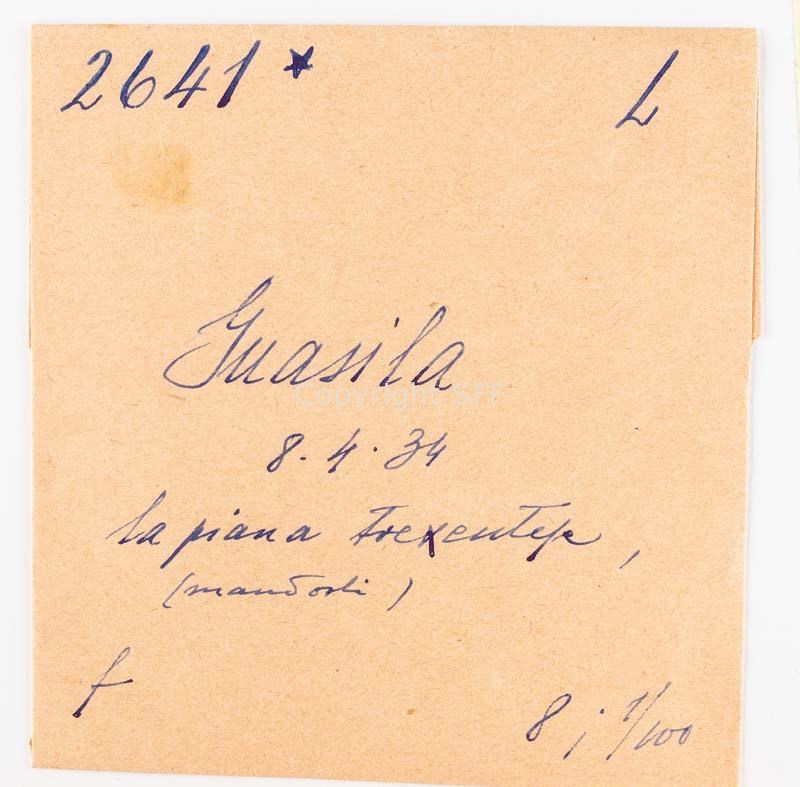 2641 * L
Guasila
Copyright SFF
8.4.34
la piana trexentese,
(mandorli)
f 8 ; 1/100